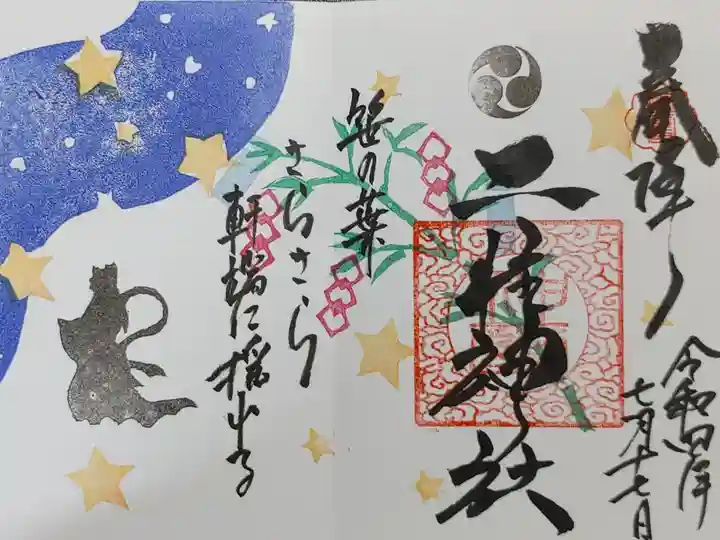 奉拝
二柱神社
令和四年
七月十七日
笹の葉
さらさら
軒端に揺れる